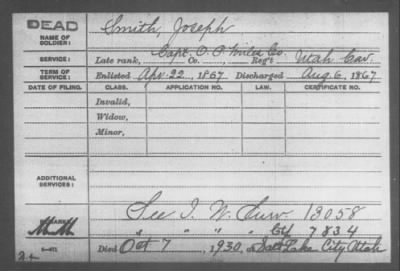 DEAD
NAME OF SOLDIER: Smith, Joseph
SERVICE: Late rank, Capt. O. P. Miles Co. Co. , Reg't Utah Cav.
TERM OF SERVICE: Enlisted Apr. 22, 1867 Discharged Aug. 6, 1867
DATE OF FILING. CLASS. APPLICATION NO. LAW. CERTIFICATE NO.
Invalid,
Widow,
Minor,
ADDITIONAL SERVICES:
See I. W. Surv 13058
" " " " Ctf 7834
REMARKS:
Died Oct 7, 1930, at Salt Lake City Utah